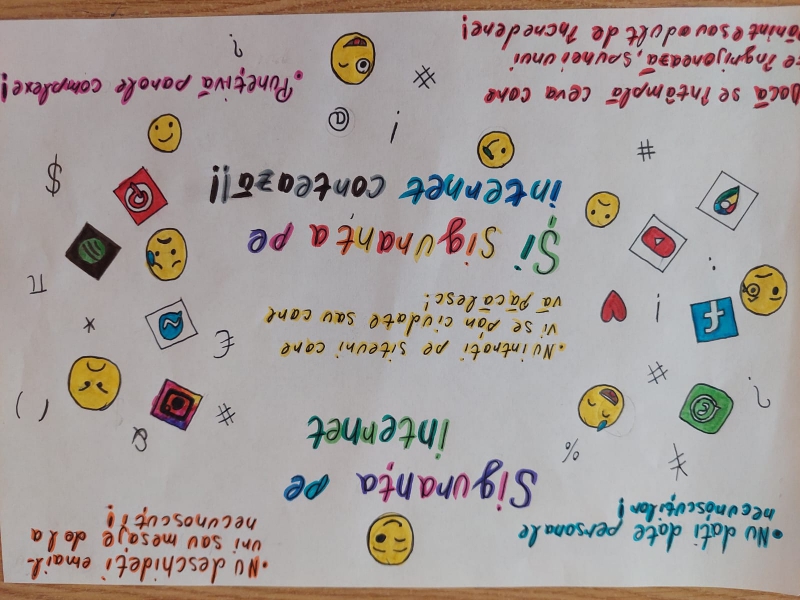 •Nu dați date personale
necunoscuților!
•Nu deschideți email-
uri sau mesaje de la
necunoscuți!
Siguranța pe
internet
•Nu intrați pe siteuri care
vi se par ciudate sau care
vă păcălesc!
Și siguranța pe
internet contează!!
Dacă se întâmplă ceva care
te îngrijorează, spunei unui
părinte sau adult de încredere!
•Punețivă parole complexe!